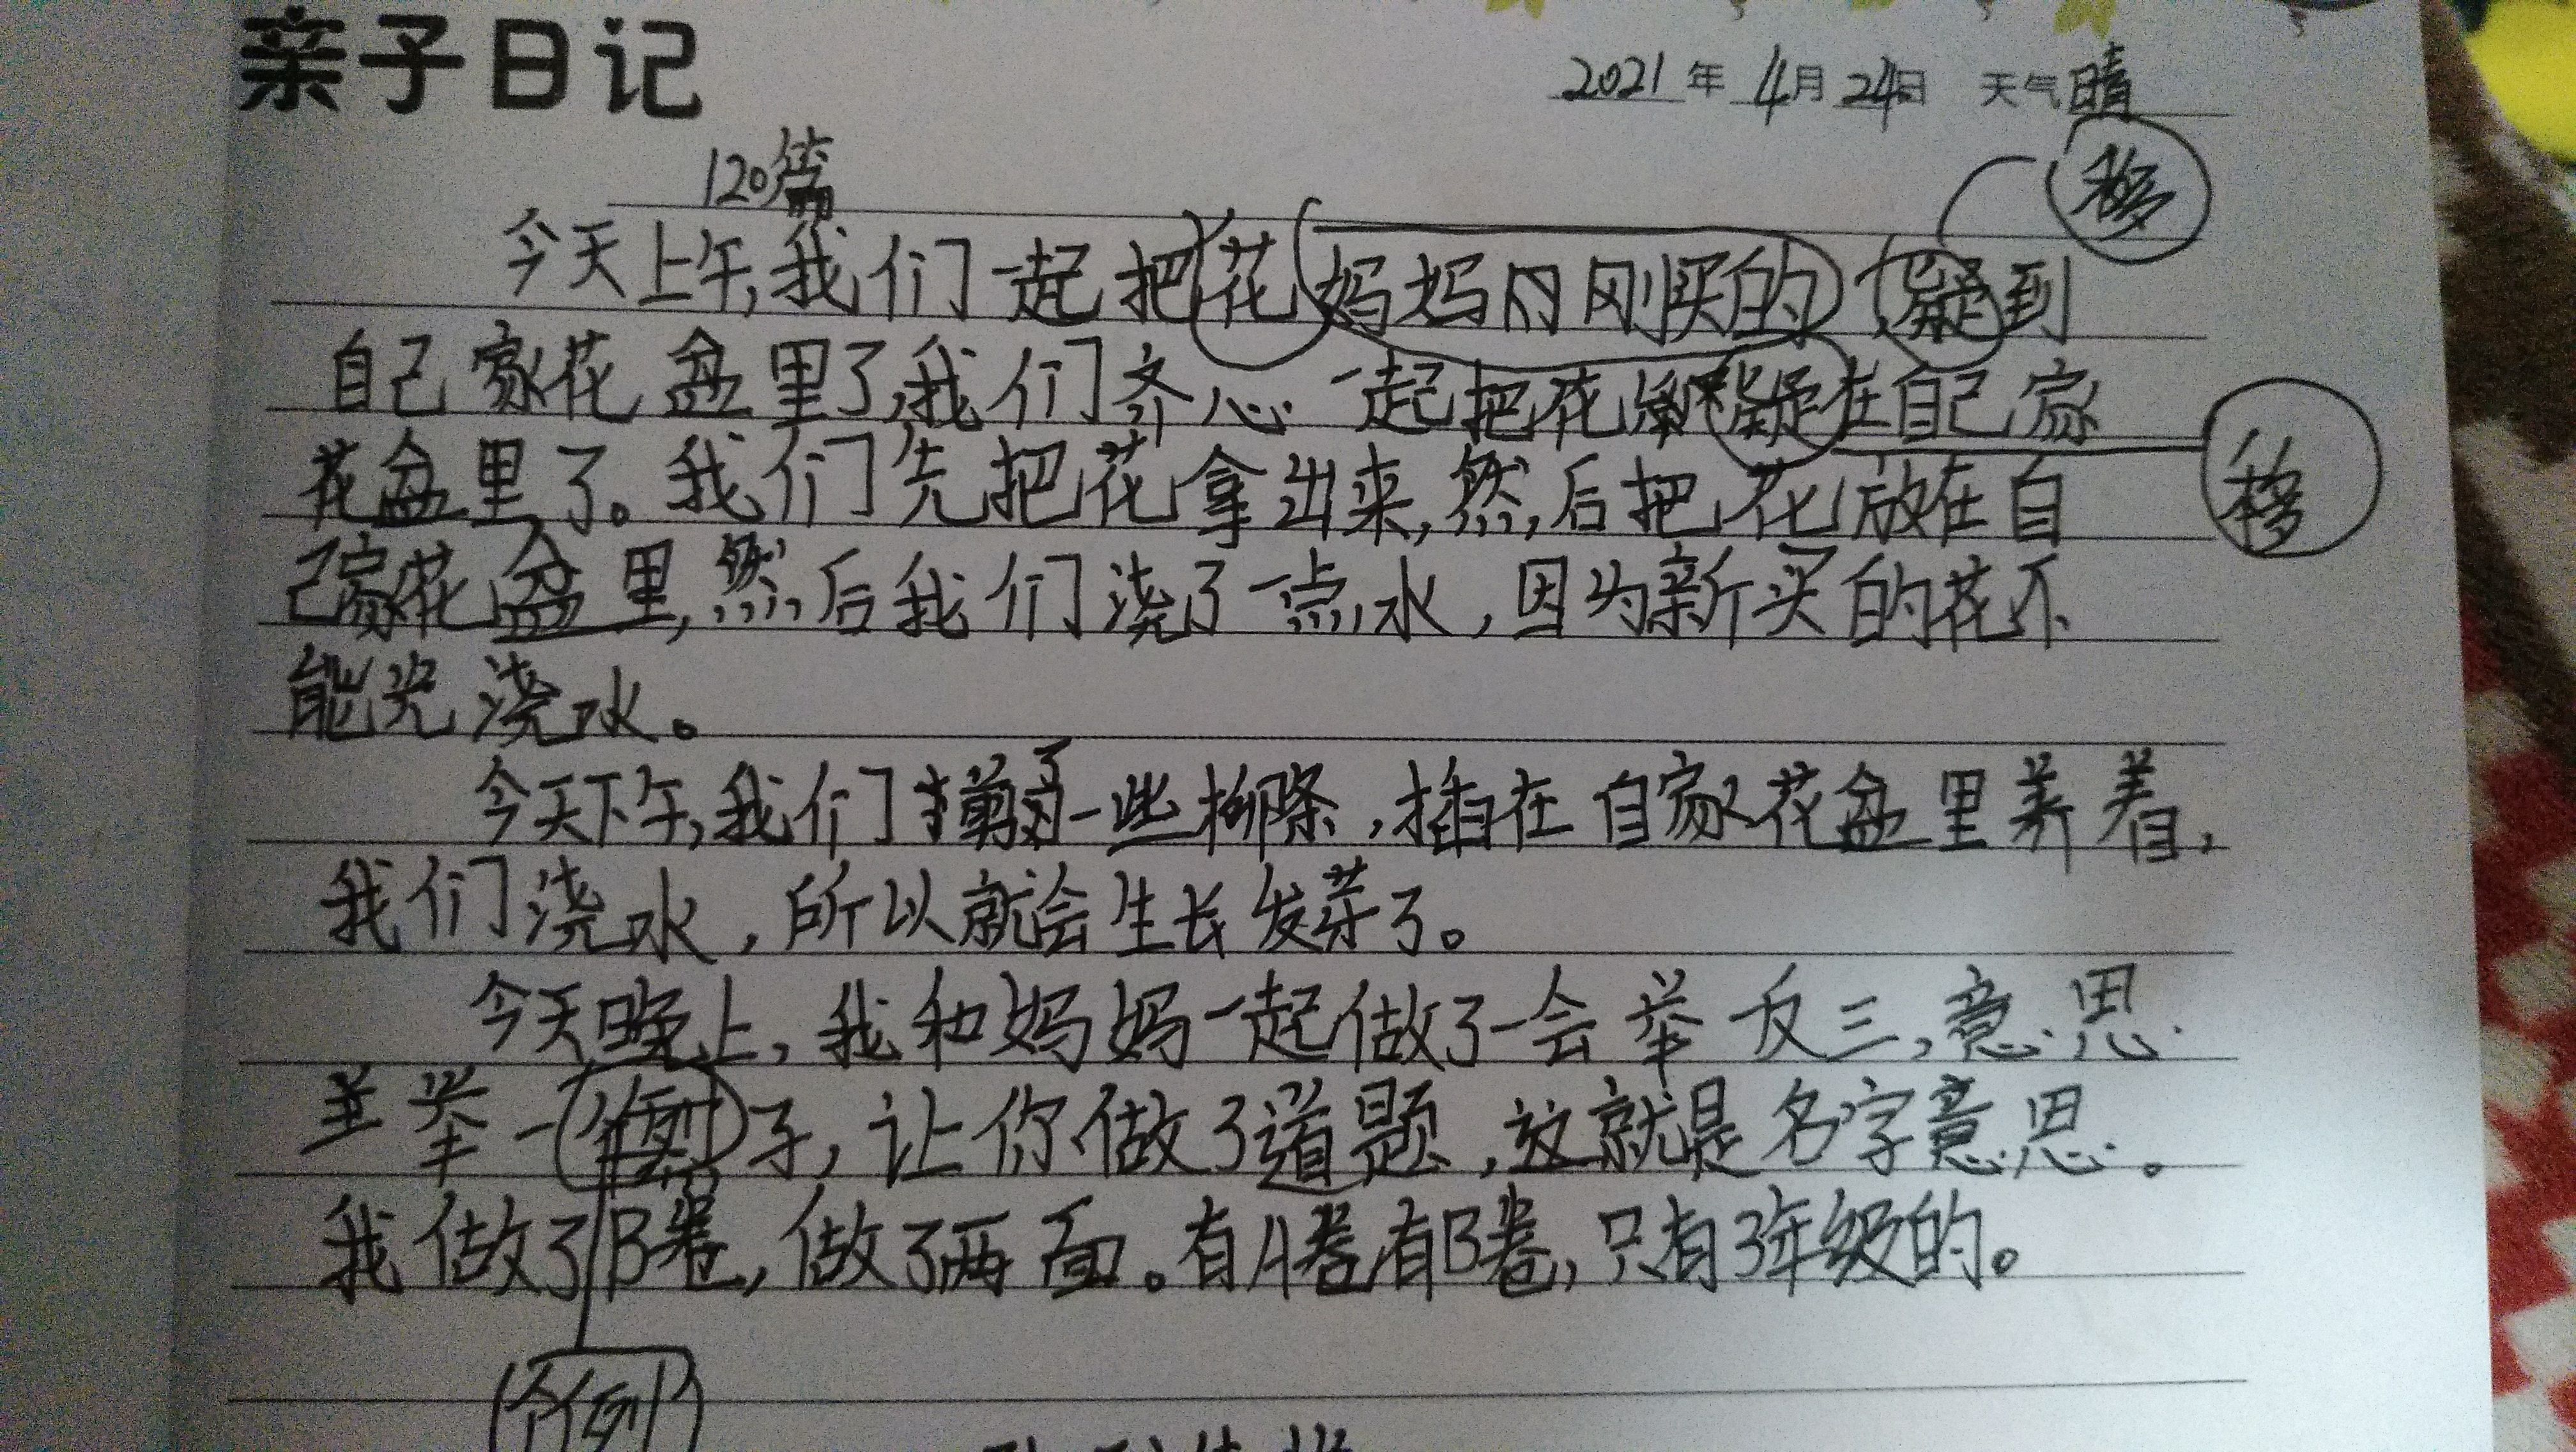 亲子日记
2021年4月24日 天气晴
120篇
移
今天上午,我们一起把花妈妈刚买的到
自己家花盆里了,我们齐心一起把花在自己家
移
花盆里了。我们先把花拿出来,然后把花放在自
己家花盆里,然后我们浇了一点水,因为新买的花不
能光浇水。
今天下午,我们剪了一些柳条,插在自家花盆里养着,
我们浇水,所以就会生长发芽了。
今天晚上,我和妈妈一起做了一会举反三,意思
是举一子,让你做了道题,这就是名字意思。
我做了B卷,做了两面。有A卷有B卷,只有3年级的。
个例